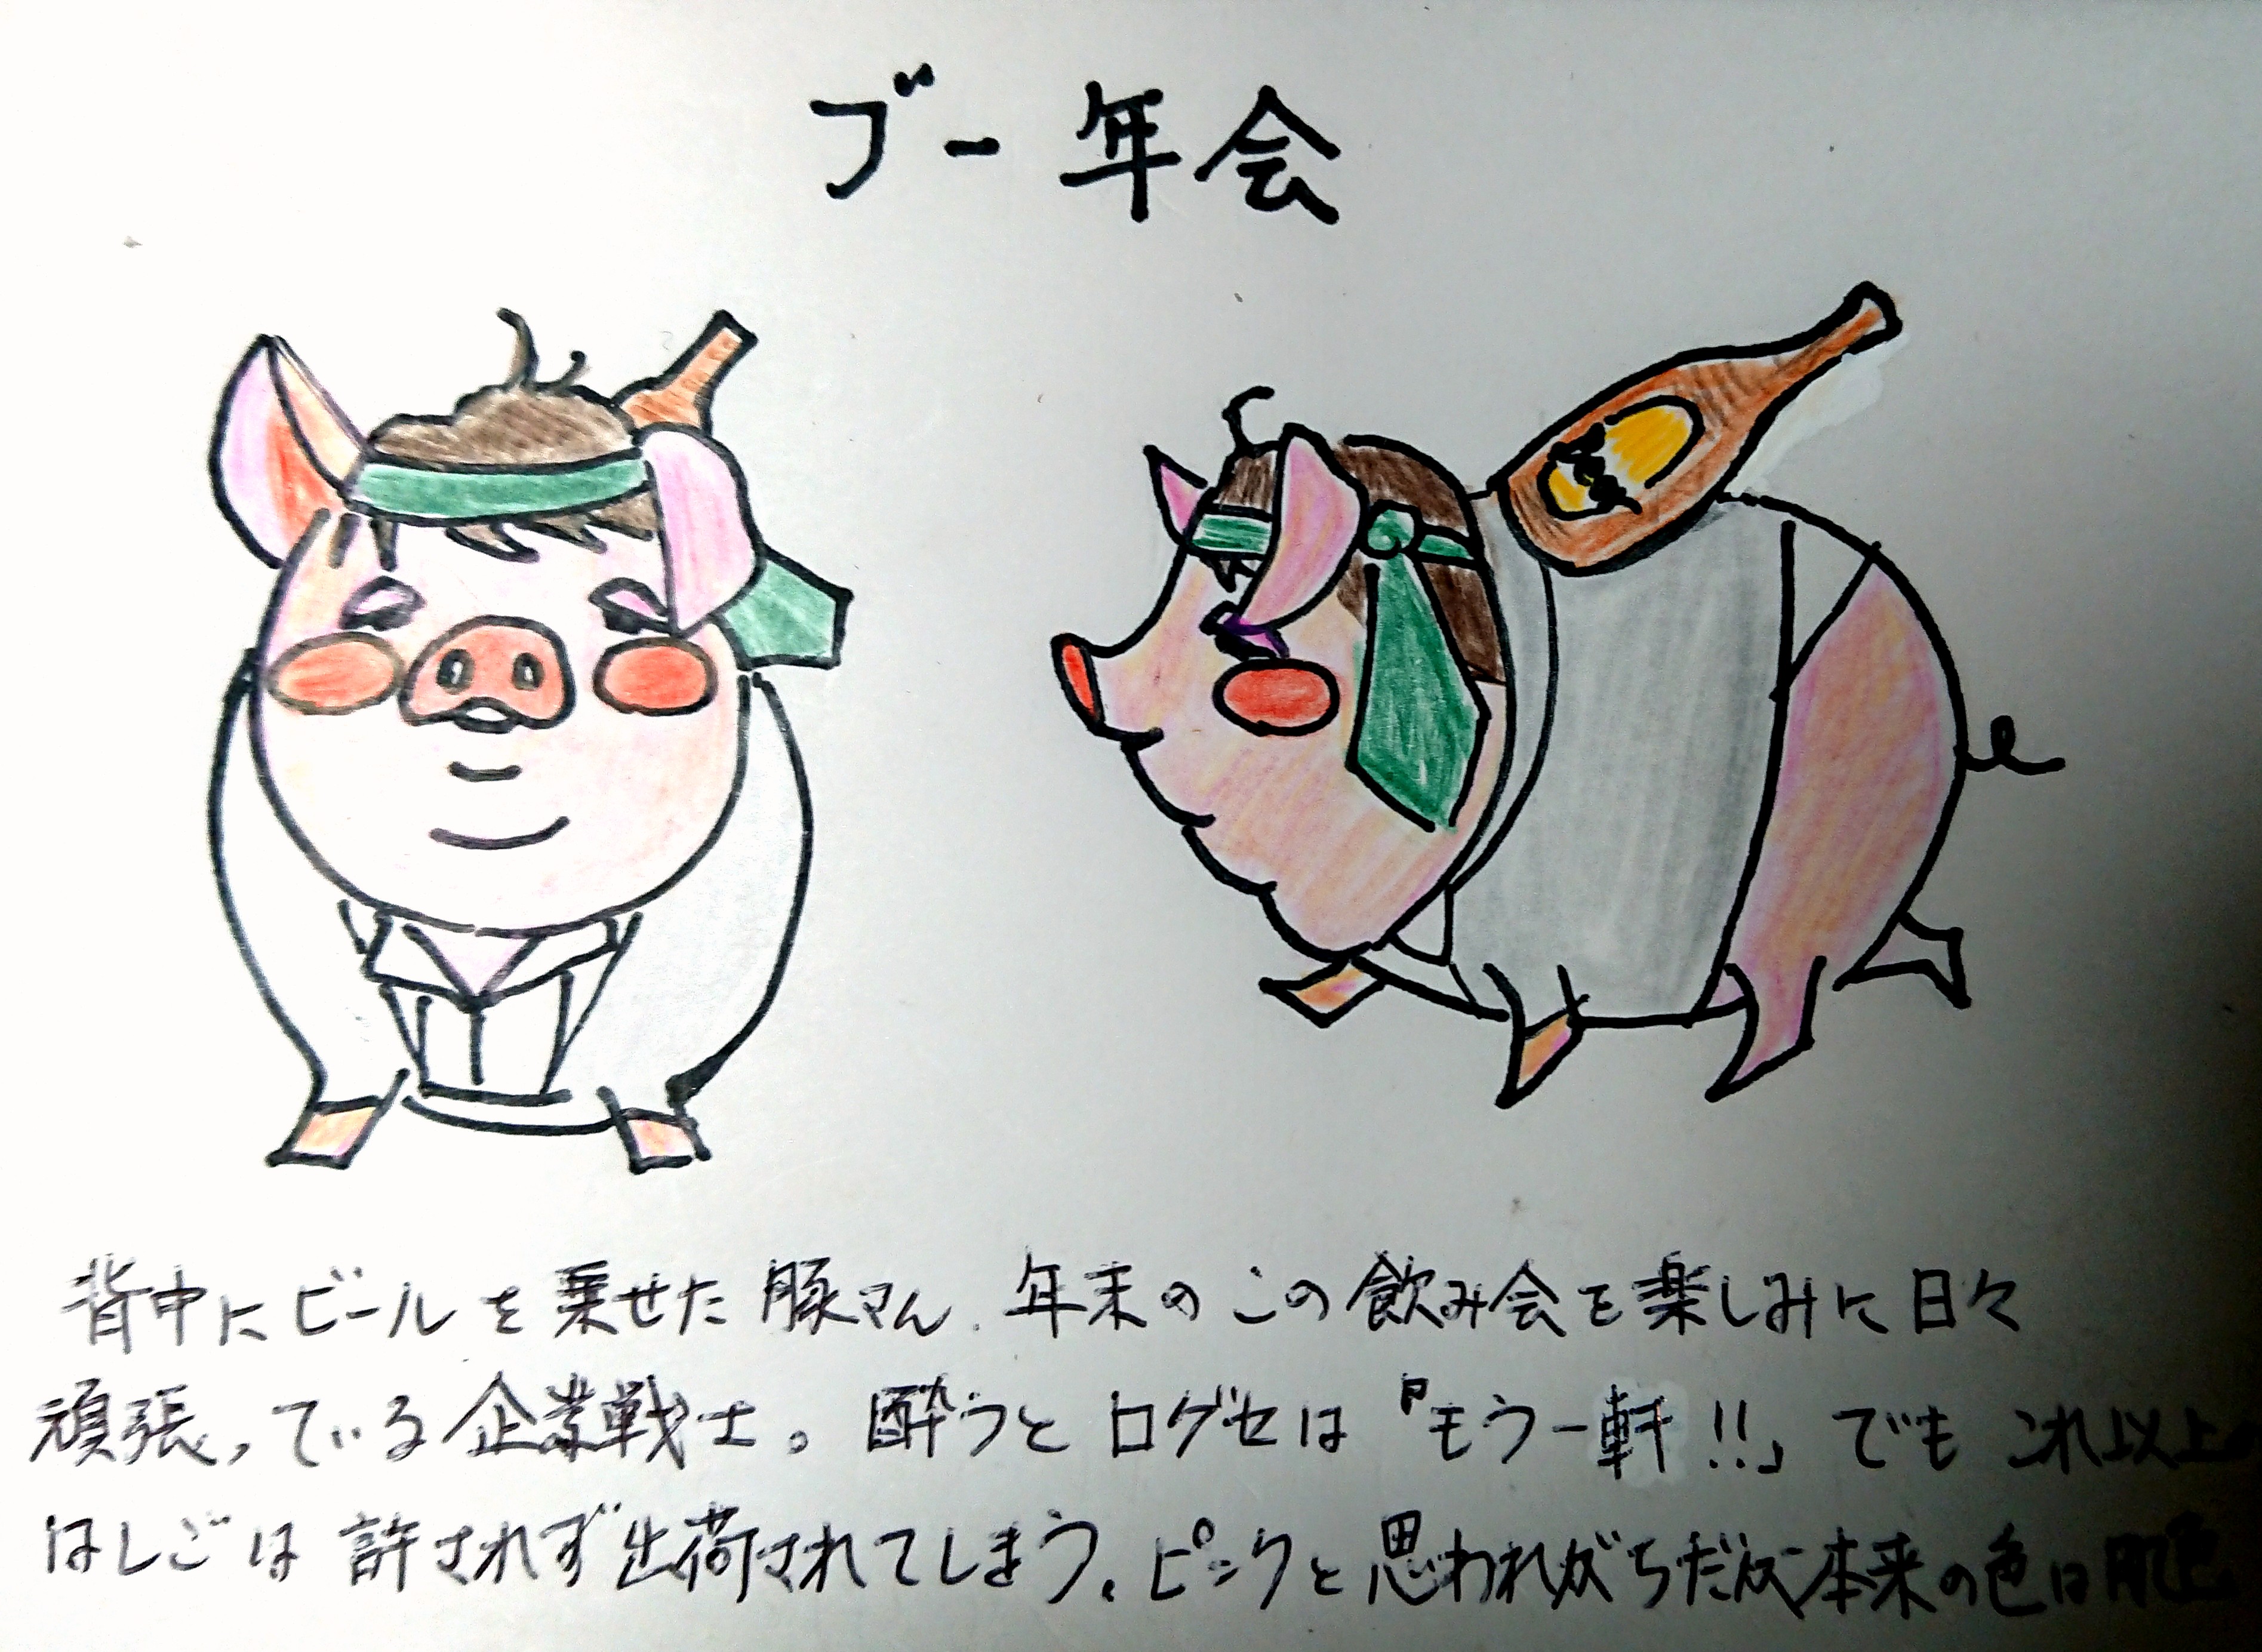 ブー年会
背中にビールを乗せた豚さん。年末のこの飲み会を楽しみに日々
頑張っている企業戦士。酔うと口グセは『モウ一軒!!」でもこれ以上
はしごは許されず出荷されてしまう。ピンクと思われがちだが本来の色は肌色